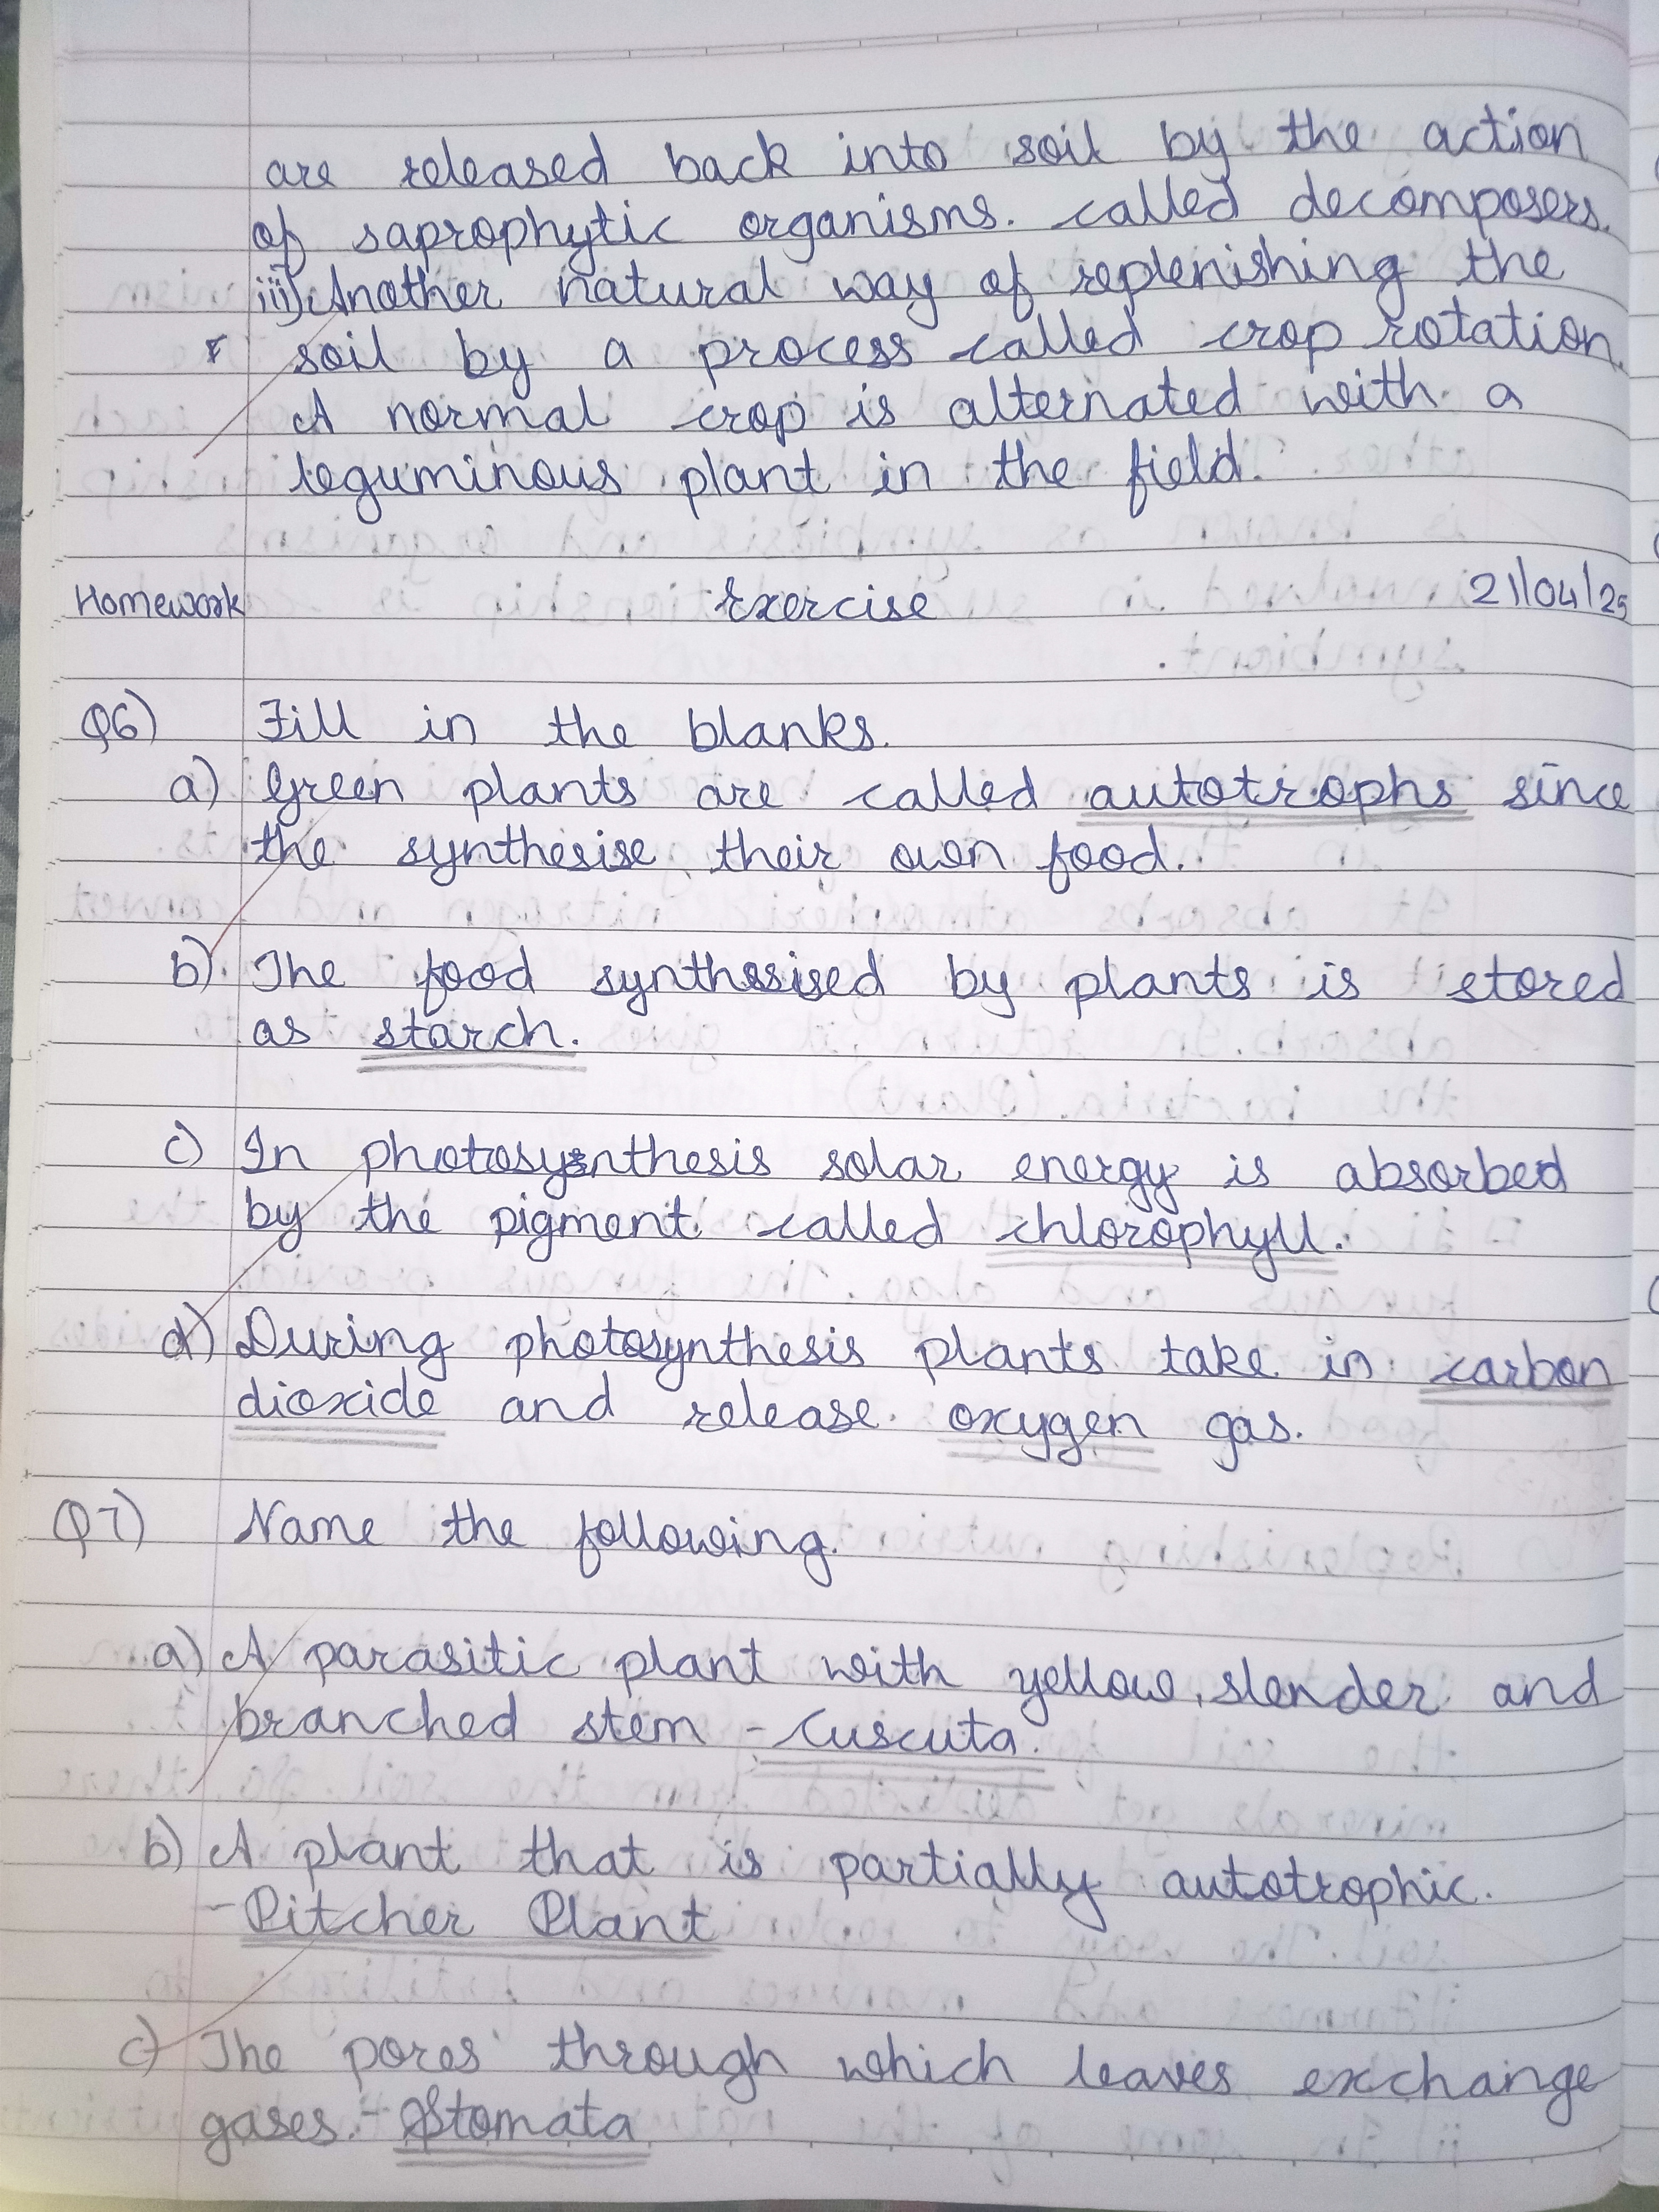 are released back into soil by the action
of saprophytic organisms. called decomposers.
iii) Another natural way of replenishing the
soil by a process called crop rotation.
A normal crop is alternated with a
leguminous plant in the field.
Homework Exercise 21/04/25
Q6) Fill in the blanks.
a) Green plants are called autotrophs since
the synthesise their own food.
b) The food synthesised by plants is stored
as starch.
c) In photosynthesis solar energy is absorbed
by the pigment called chlorophyll.
d) During photosynthesis plants take in carbon
dioxide and release oxygen gas.
Q7) Name the following.
a) A parasitic plant with yellow, slender and
branched stem - Cuscuta.
b) A plant that is partially autotrophic.
- Pitcher Plant
c) The pores through which leaves exchange
gases. - Stomata